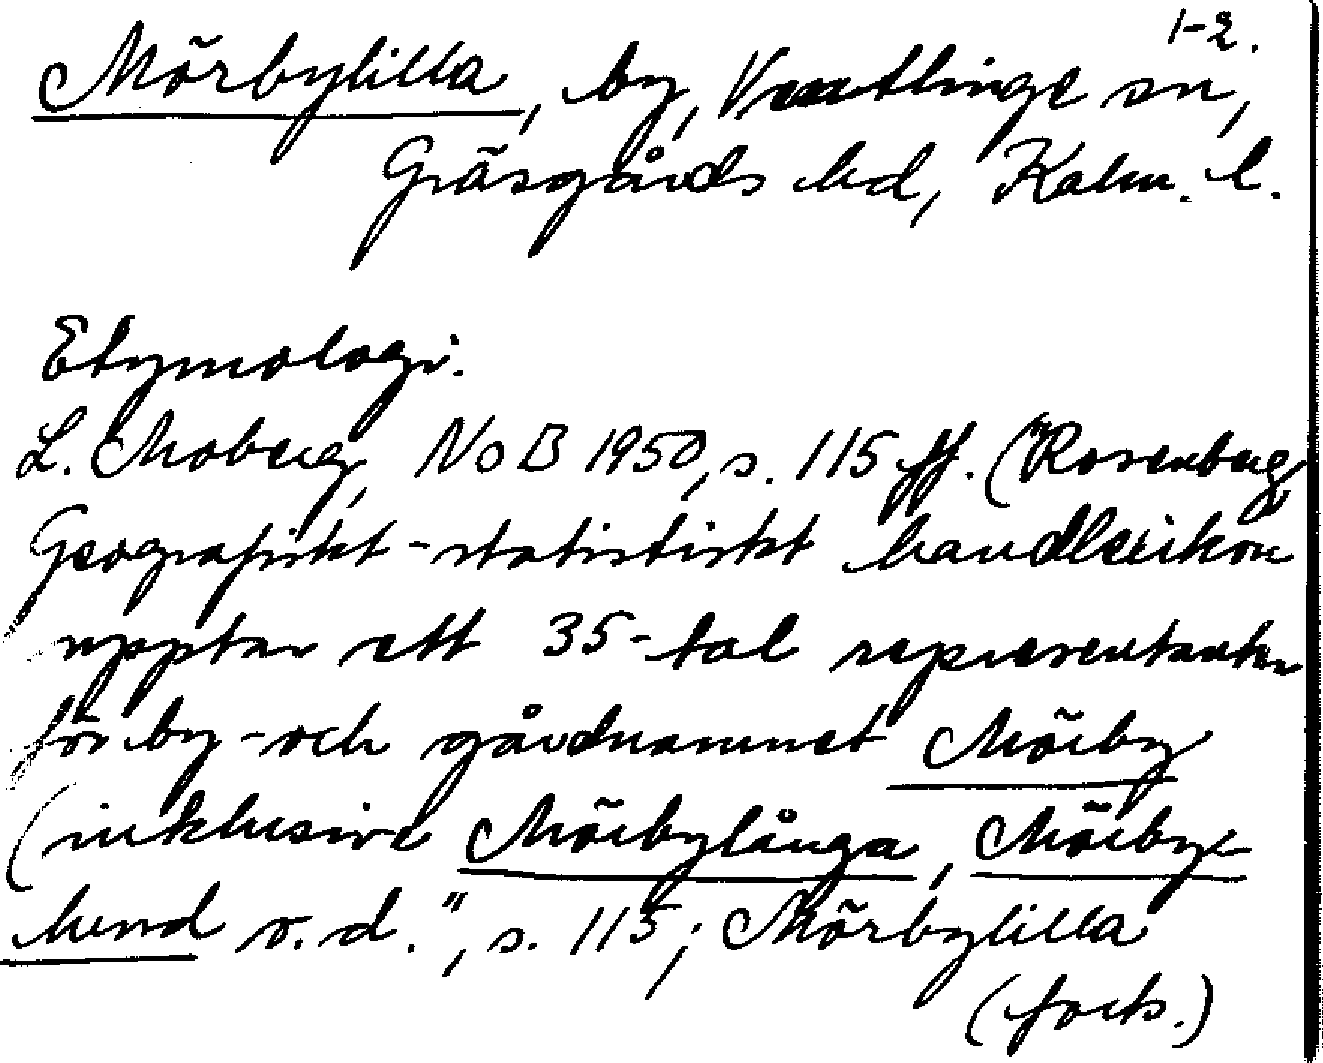 1-2.
Mörbylilla, by, Ventlinge sn,
Gräsgårds hd, Kalm. l.
Etymologi.
L. Moberg, NoB 1950, s. 115 ff. ("Rosenberg
Geografiskt-statistiskt handlexikon
upptar ett 35-tal representanter
för by- och gårdnamnet Mörby
(inklusive Mörbylånga, Mörbye-
lund o.d.", s. 115; Mörbylilla
(forts.)